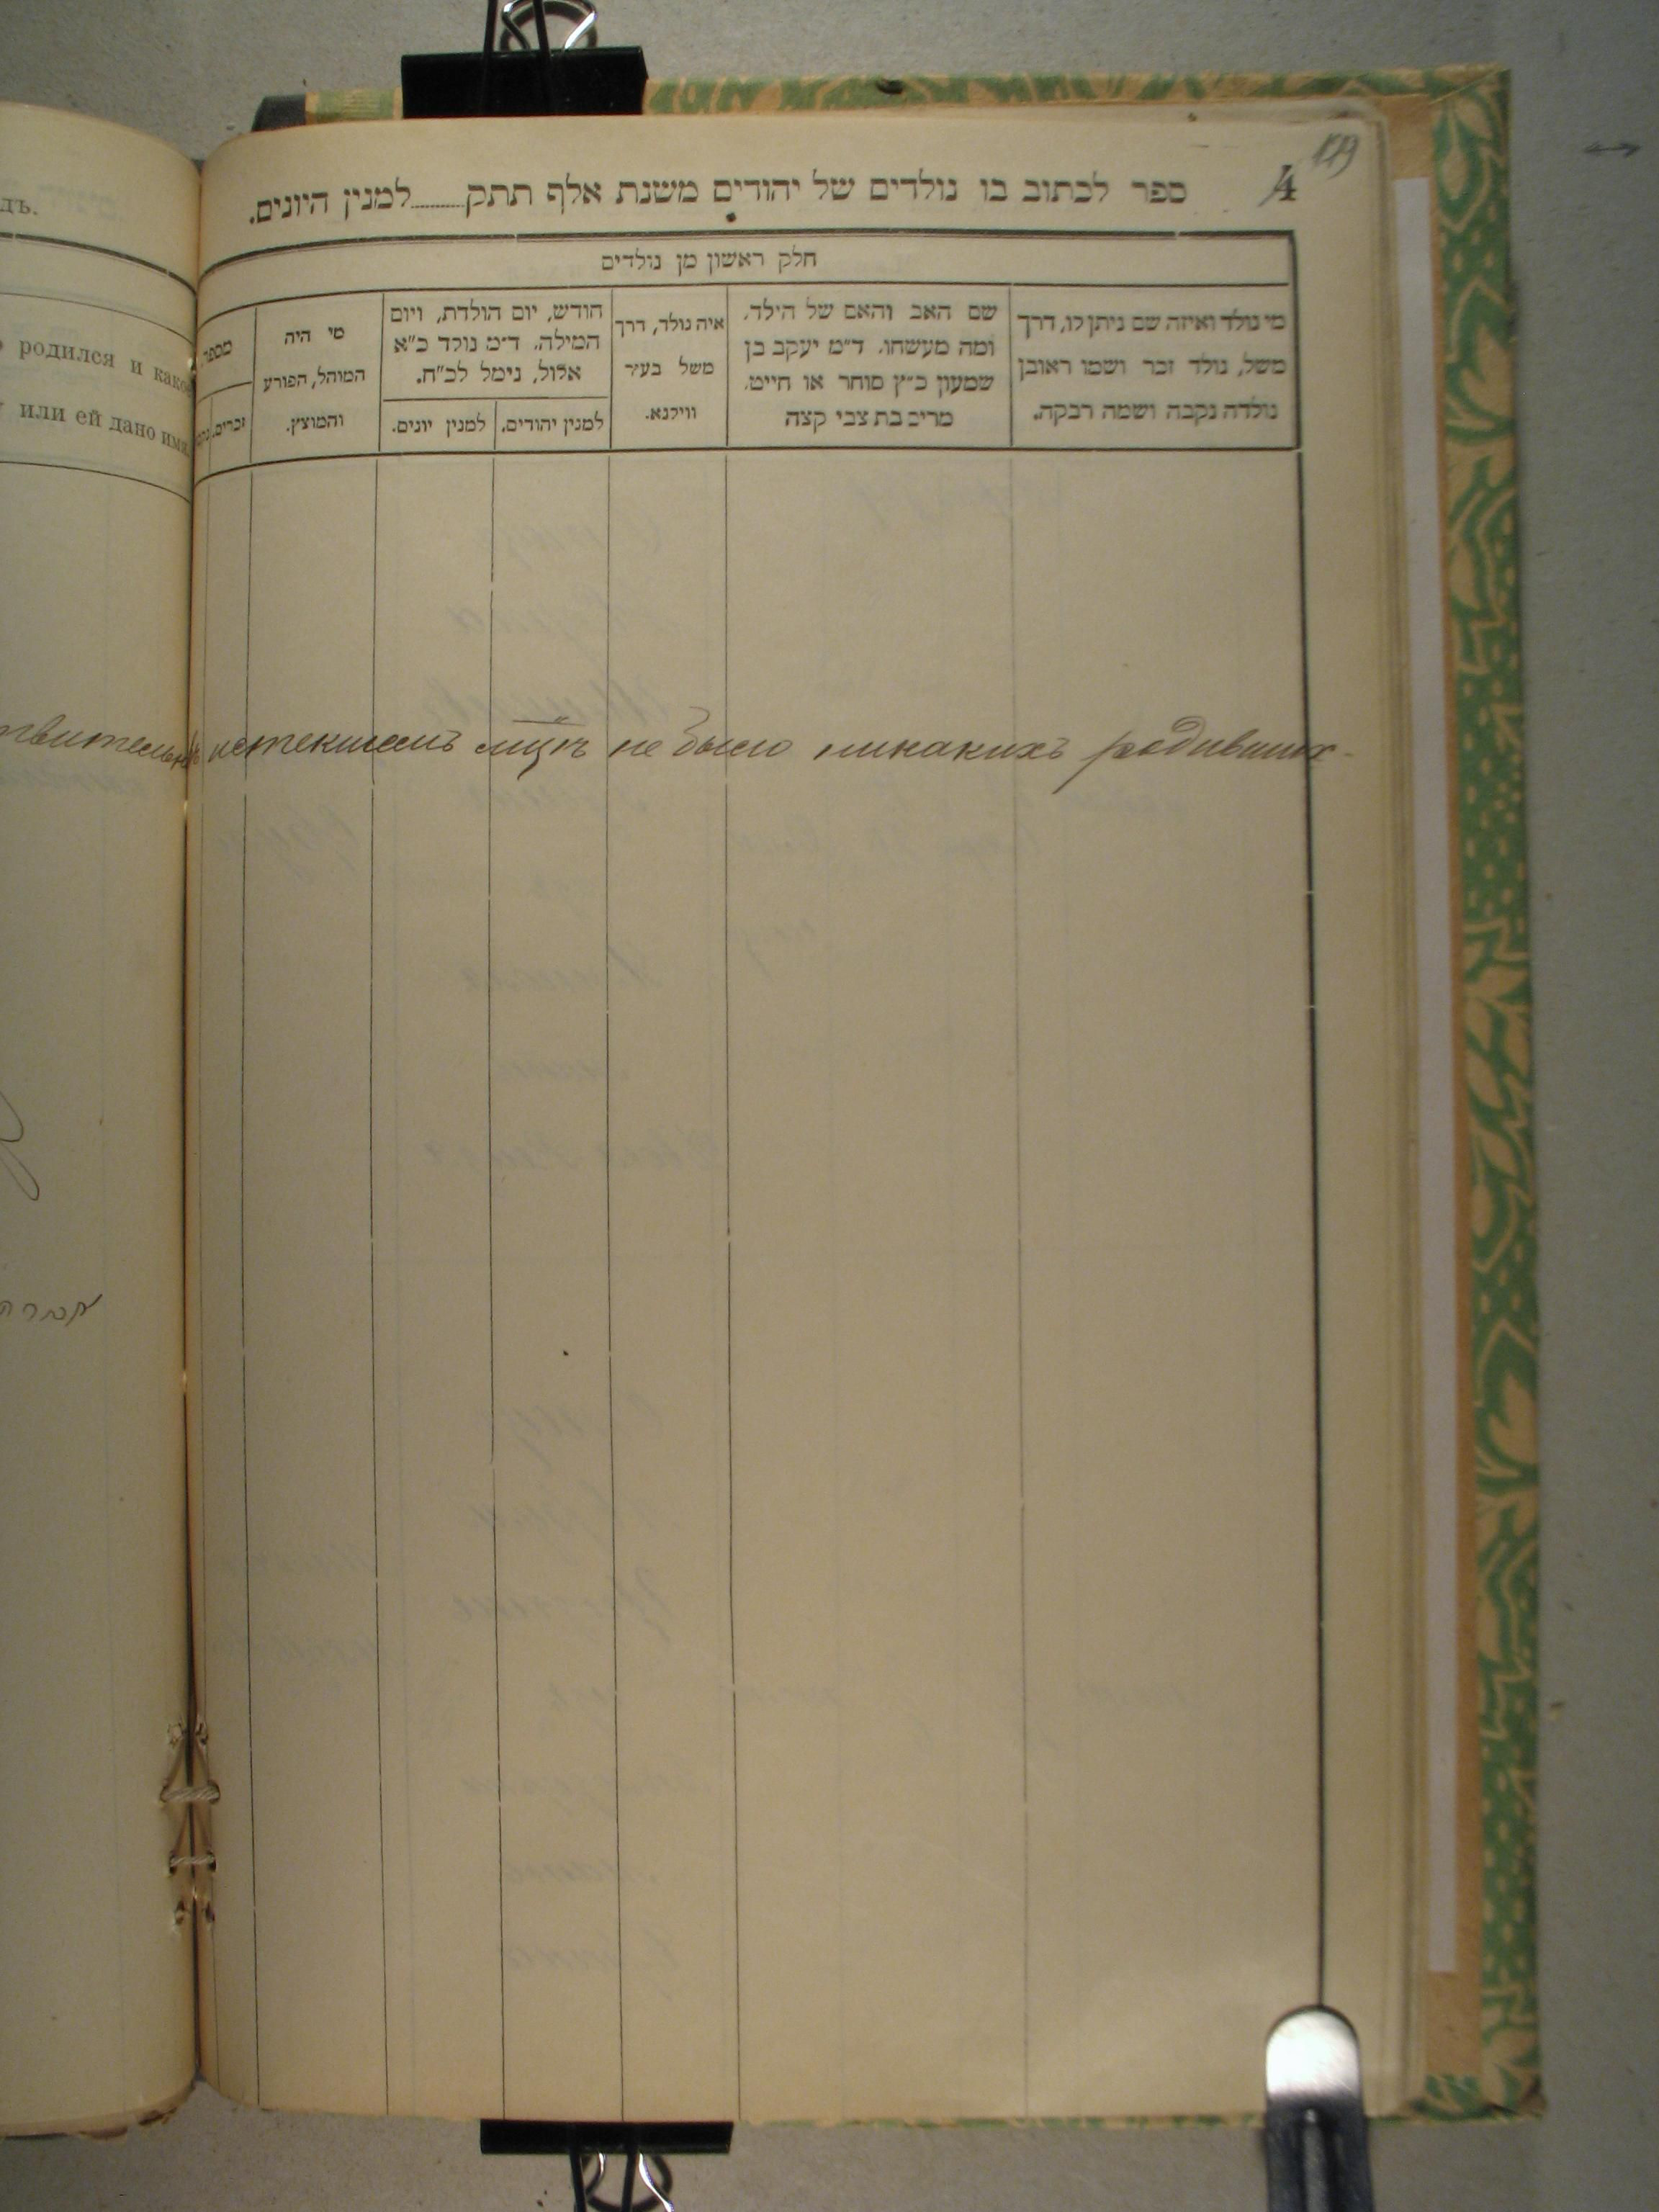 дъ.
родился и како
или ей дано имя
4
ספר לכתוב בו נולדים של יהודים משנת אלף תתק למנין היונים.
חלק ראשון מן נולדים
מי נולד ואיזה שם ניתן לו, דרך
משל, נולד זכר ושמו ראובן
נולדה נקבה ושמה רבקה.
שם האב והאם של הילד.
ומה מעשהו. ד״מ יעקב בן
שמעון כ״ץ סוחר או חייט.
מרים בת צבי קצה
איה נולד, דרך
משל בעיר
ווילנא.
הודש, יום הולדת, ויום
המילה. ד״מ נולד כ״א
אלול, נימל לכ״ח.
למנין יהודים,
למנין יונים.
מי היה
המוהל, הפורע
והמוצץ.
מספר
זכרים.
истекшемъ мцѣ не было никакихъ родивших-